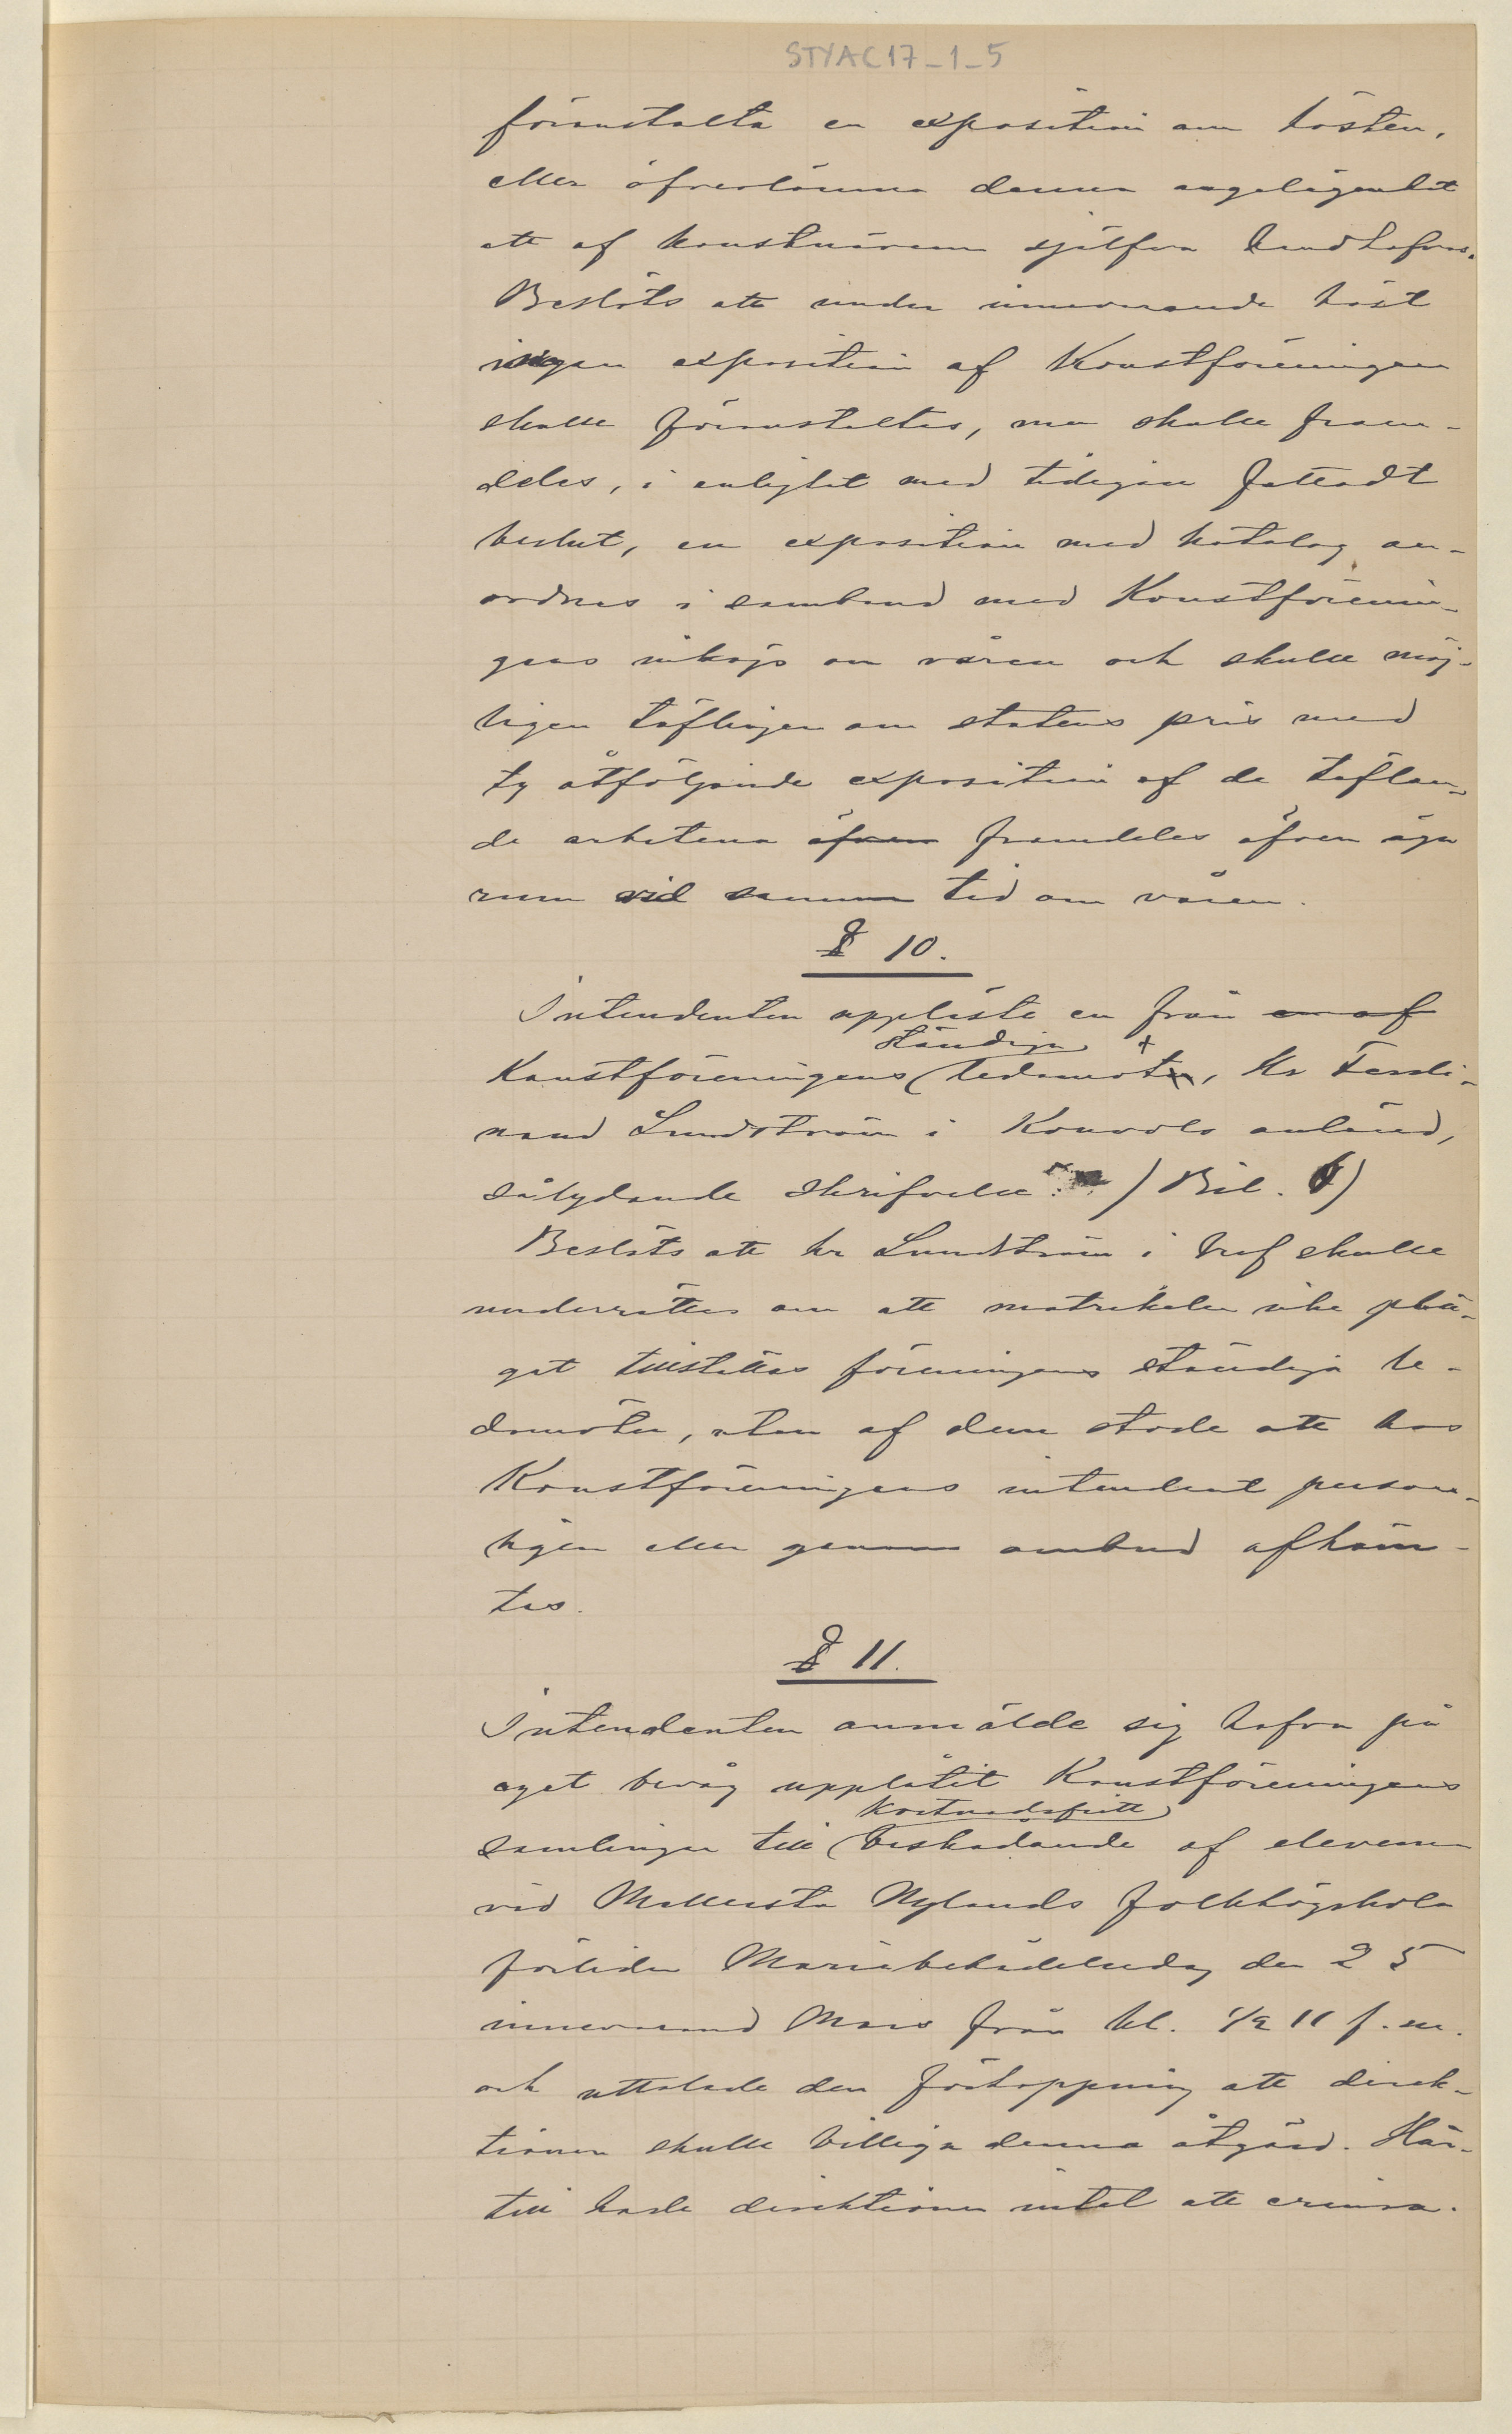 STYAC17_1_5
föranstalta en exposition om hösten,
eller öfverlämna denna angelägenhet
att af konstnärerna sjelfva handhafvas.
Beslöts att under innevarande höst
ingen exposition af Konstföreningen
skulle föranstaltas, men skulle fram-
deles, i enlighet med tidigare fattadt
beslut, en exposition med katalog an-
ordnas i samband med Konstförenin-
gens inköp om våren och skulle möj-
ligen täflingen om statens pris med
ty åtföljande exposition af de täflan-
de arbetena äfven framdeles äfven äga
rum vid samma tid om våren.
§ 10.
Intendenten uppläste en från en af
ständiga
Konstföreningens ledamot, Hr Ferdi-
nand Lundström i Kouvola anländ,
sålydande skrifvelse: ) Bil. )
Beslöts att hr Lundström i bref skulle
underrättas om att matrikeln icke plä-
gat tillställas föreningens ständiga le-
damöter, utan af dem stode att hos
Konstföreningens intendent person-
ligen eller genom ombud afhäm-
tas.
§ 11.
Intendenten anmälde sig hafva på
eget bevåg upplåtit Konstföreningens
kostnadsfritt
samlingar till beskådande af eleverna
vid Mellersta Nylands folkhögskola
förliden Mariæbebådelsedag den 25
innevarand Mars från kl. 1/2 11 f.m.
och uttalade den förhoppning att direk-
tionen skulle billiga denna åtgärd. Här-
till hade direktionen intet att erinra.